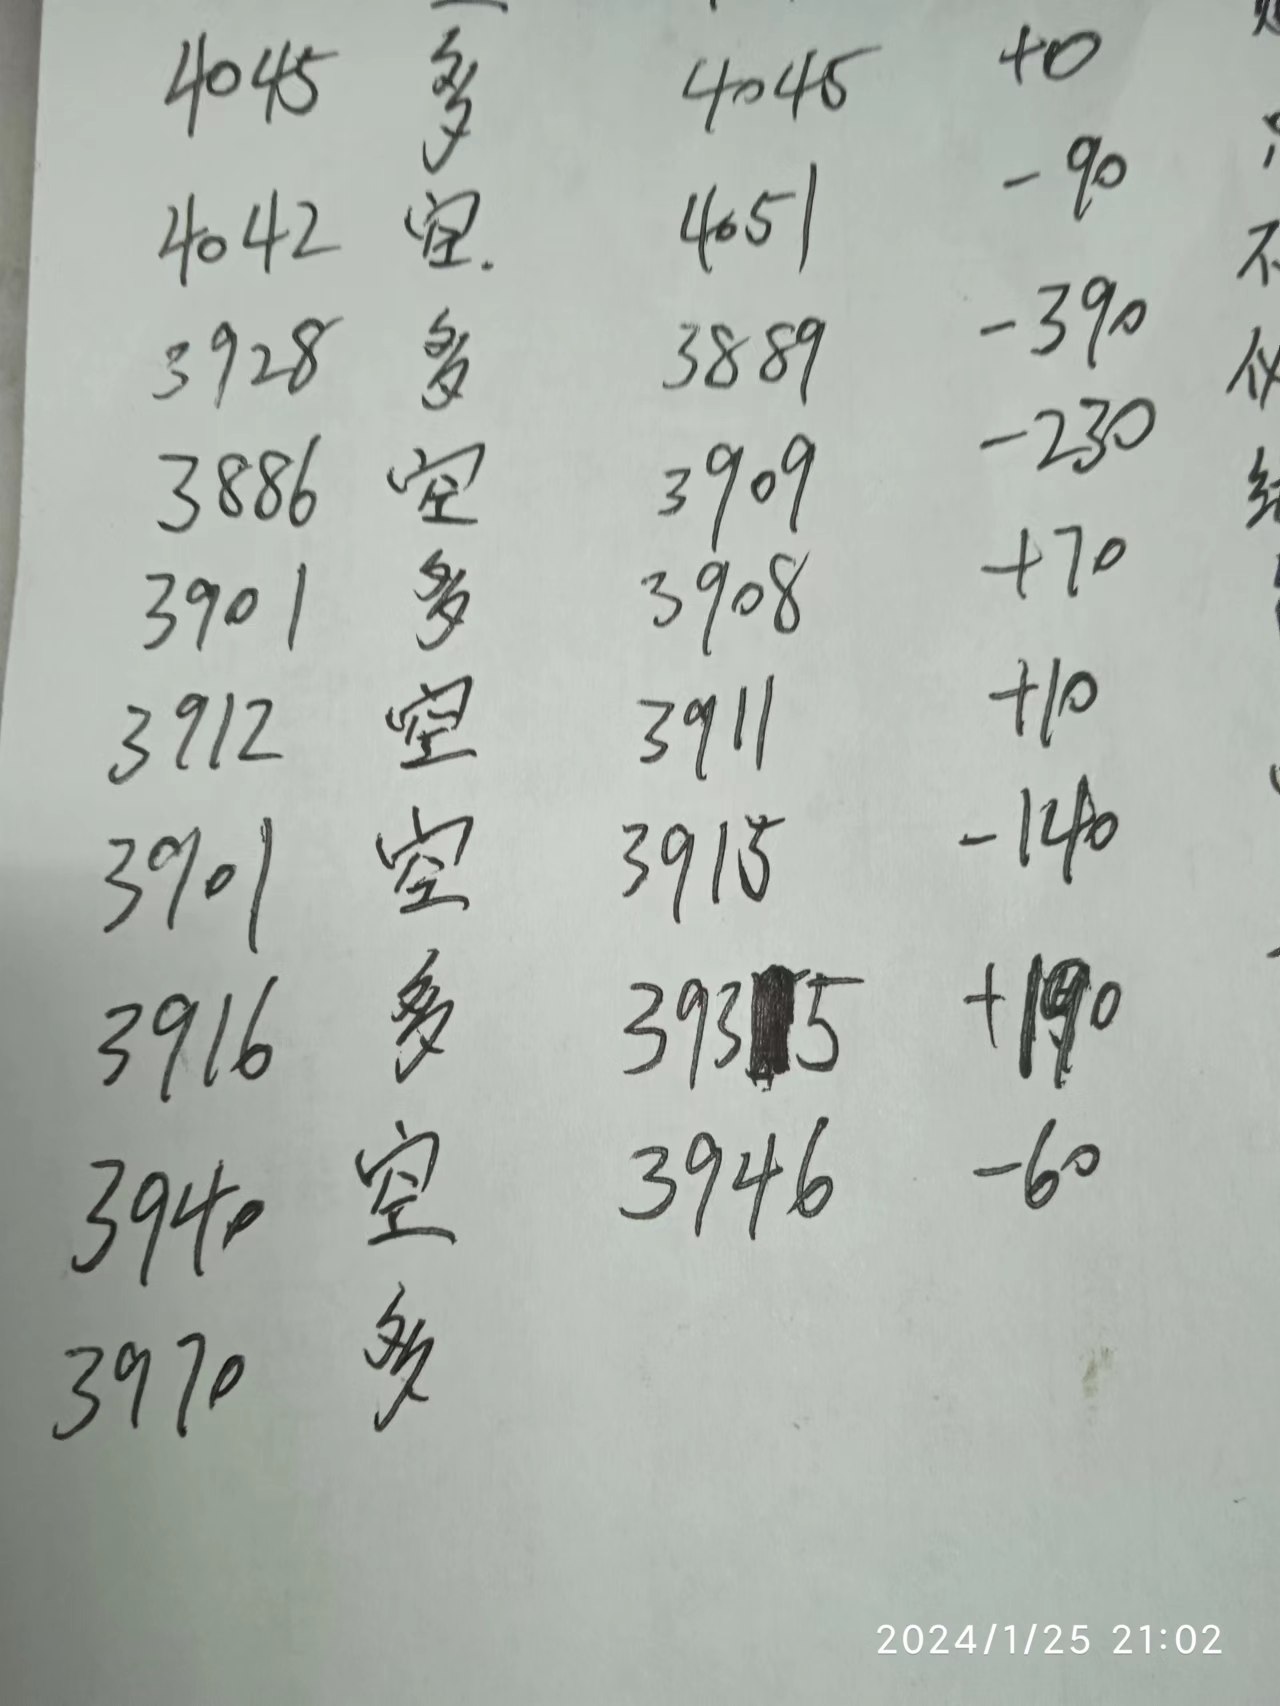 4045 多 4045 +0
4042 空. 4051 -90
3928 多 3889 -390
3886 空 3909 -230
3901 多 3908 +70
3912 空 3911 +10
3901 空 3915 -140
3916 多 3935 +190
3940 空 3946 -60
3970 多
不
2024/1/25 21:02